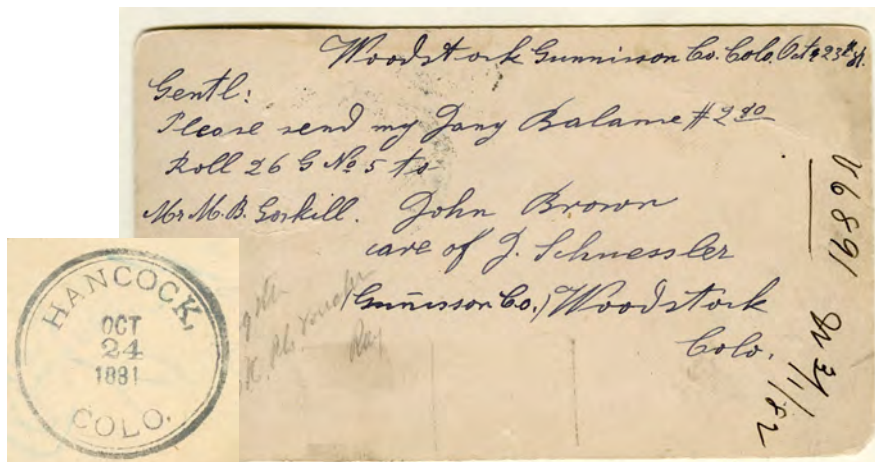 Woodstock Gunnisson Co. Colo. Oct. 23rd 81.
Gentl:
Please send my Balance $2 90
Roll 26 G No 5 to
Mr M. B. Gaskill. John Brown
care of J. Schuessler
(Gunnisson Co.) Woodstock
Colo.
V 6891
3/1/82
HANCOCK,
OCT
24
1881
COLO.